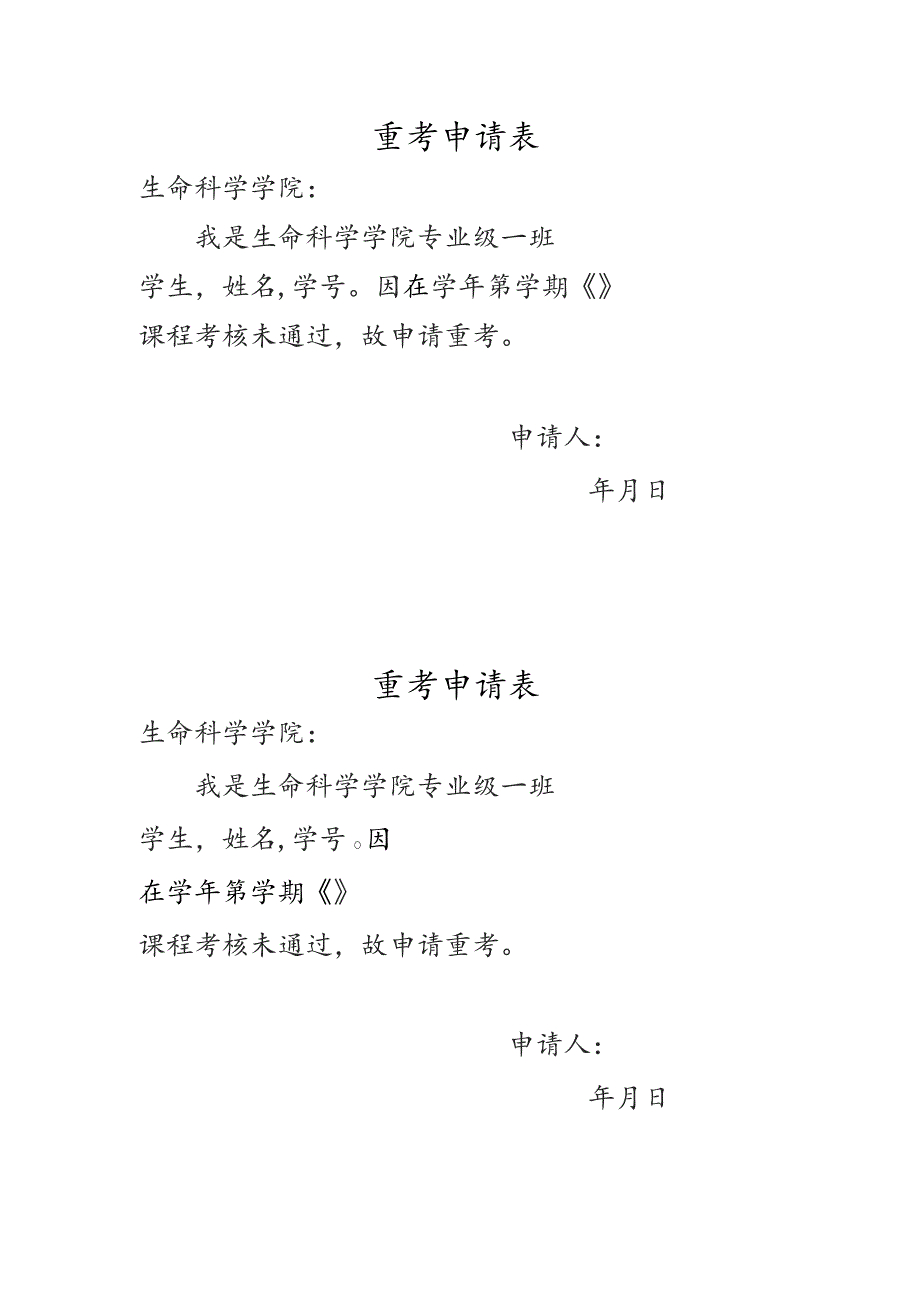 重考申请表
生命科学学院：
我是生命科学学院专业级一班
学生，姓名,学号。因在学年第学期《》
课程考核未通过，故申请重考。
申请人：
年月日
重考申请表
生命科学学院：
我是生命科学学院专业级一班
学生，姓名,学号。因
在学年第学期《》
课程考核未通过，故申请重考。
申请人：
年月日